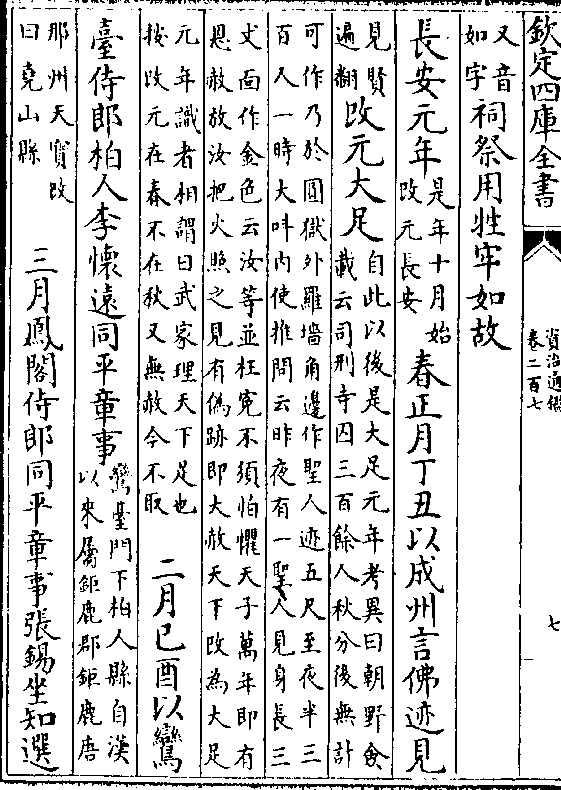 欽定四庫全書
資治通鑑
卷二百七
七
又音
如字
祠祭用牲牢如故
長安元年
是年十月始
改元長安
春正月丁丑以成州言佛迹見
見賢
遍翻
改元大足
自此以後是大足元年考異曰朝野僉
載云司刑寺囚三百餘人秋分後無計
可作乃於圜獄外羅墻角邊作聖人迹五尺至夜半三
百人一時大呌内使推問云昨夜有一聖人見身長三
丈面作金色云汝等並枉寃不須怕懼天子萬年即有
恩赦放汝把火照之見有偽跡即大赦天下改為大足
元年識者相謂曰武家理天下足也
按改元在春不在秋又無赦今不取
二月己酉以鸞
臺侍郎柏人李懷遠同平章事
鸞臺門下柏人縣自漢
以來屬鉅鹿郡鉅鹿唐
邢州天寶改
曰堯山縣
三月鳳閣侍郎同平章事張錫坐知選